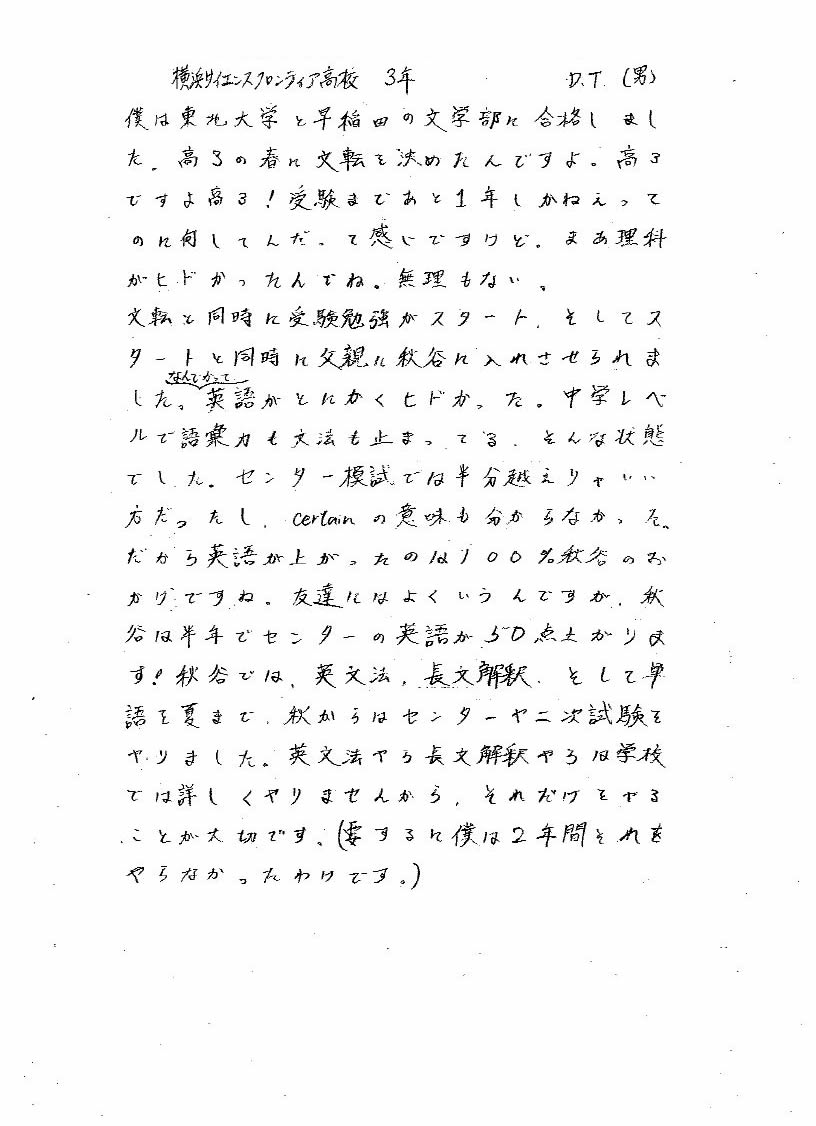 横浜サイエンスフロンティア高校 3年 D.T. (男)
僕は東北大学と早稲田の文学部に合格しまし
た。高3の春に文転を決めたんですよ。高3
ですよ高3!受験まであと1年しかねえって
のに何してんだって感じですけど。まあ理科
がヒドかったんでね。無理もない。
文転と同時に受験勉強がスタート、そしてス
タートと同時に父親に秋谷に入れさせられま
なんでかって
した。英語がとにかくヒドかった。中学レベ
ルで語彙力も文法も止まってる、そんな状態
でした。センター模試では半分越えりゃいい
方だったし、certainの意味も分からなかった。
だから英語が上がったのは100%秋谷のお
かげですね。友達にはよくいうんですが、秋
谷は半年でセンターの英語が50点上がりま
す!秋谷では、英文法、長文解釈、そして単
語を夏まで、秋からはセンターや二次試験を
やりました。英文法やら長文解釈やらは学校
では詳しくやりませんから、それだけをやる
ことが大切です。(要するに僕は2年間それを
やらなかったわけです。)